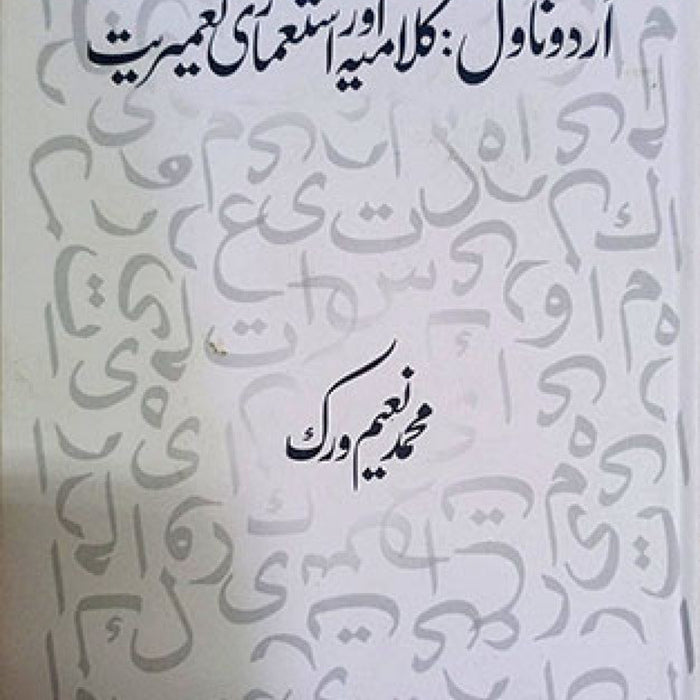 اردو ناول: کلامیہ اور استعماری تعمیریت
محمد نعیم ورک